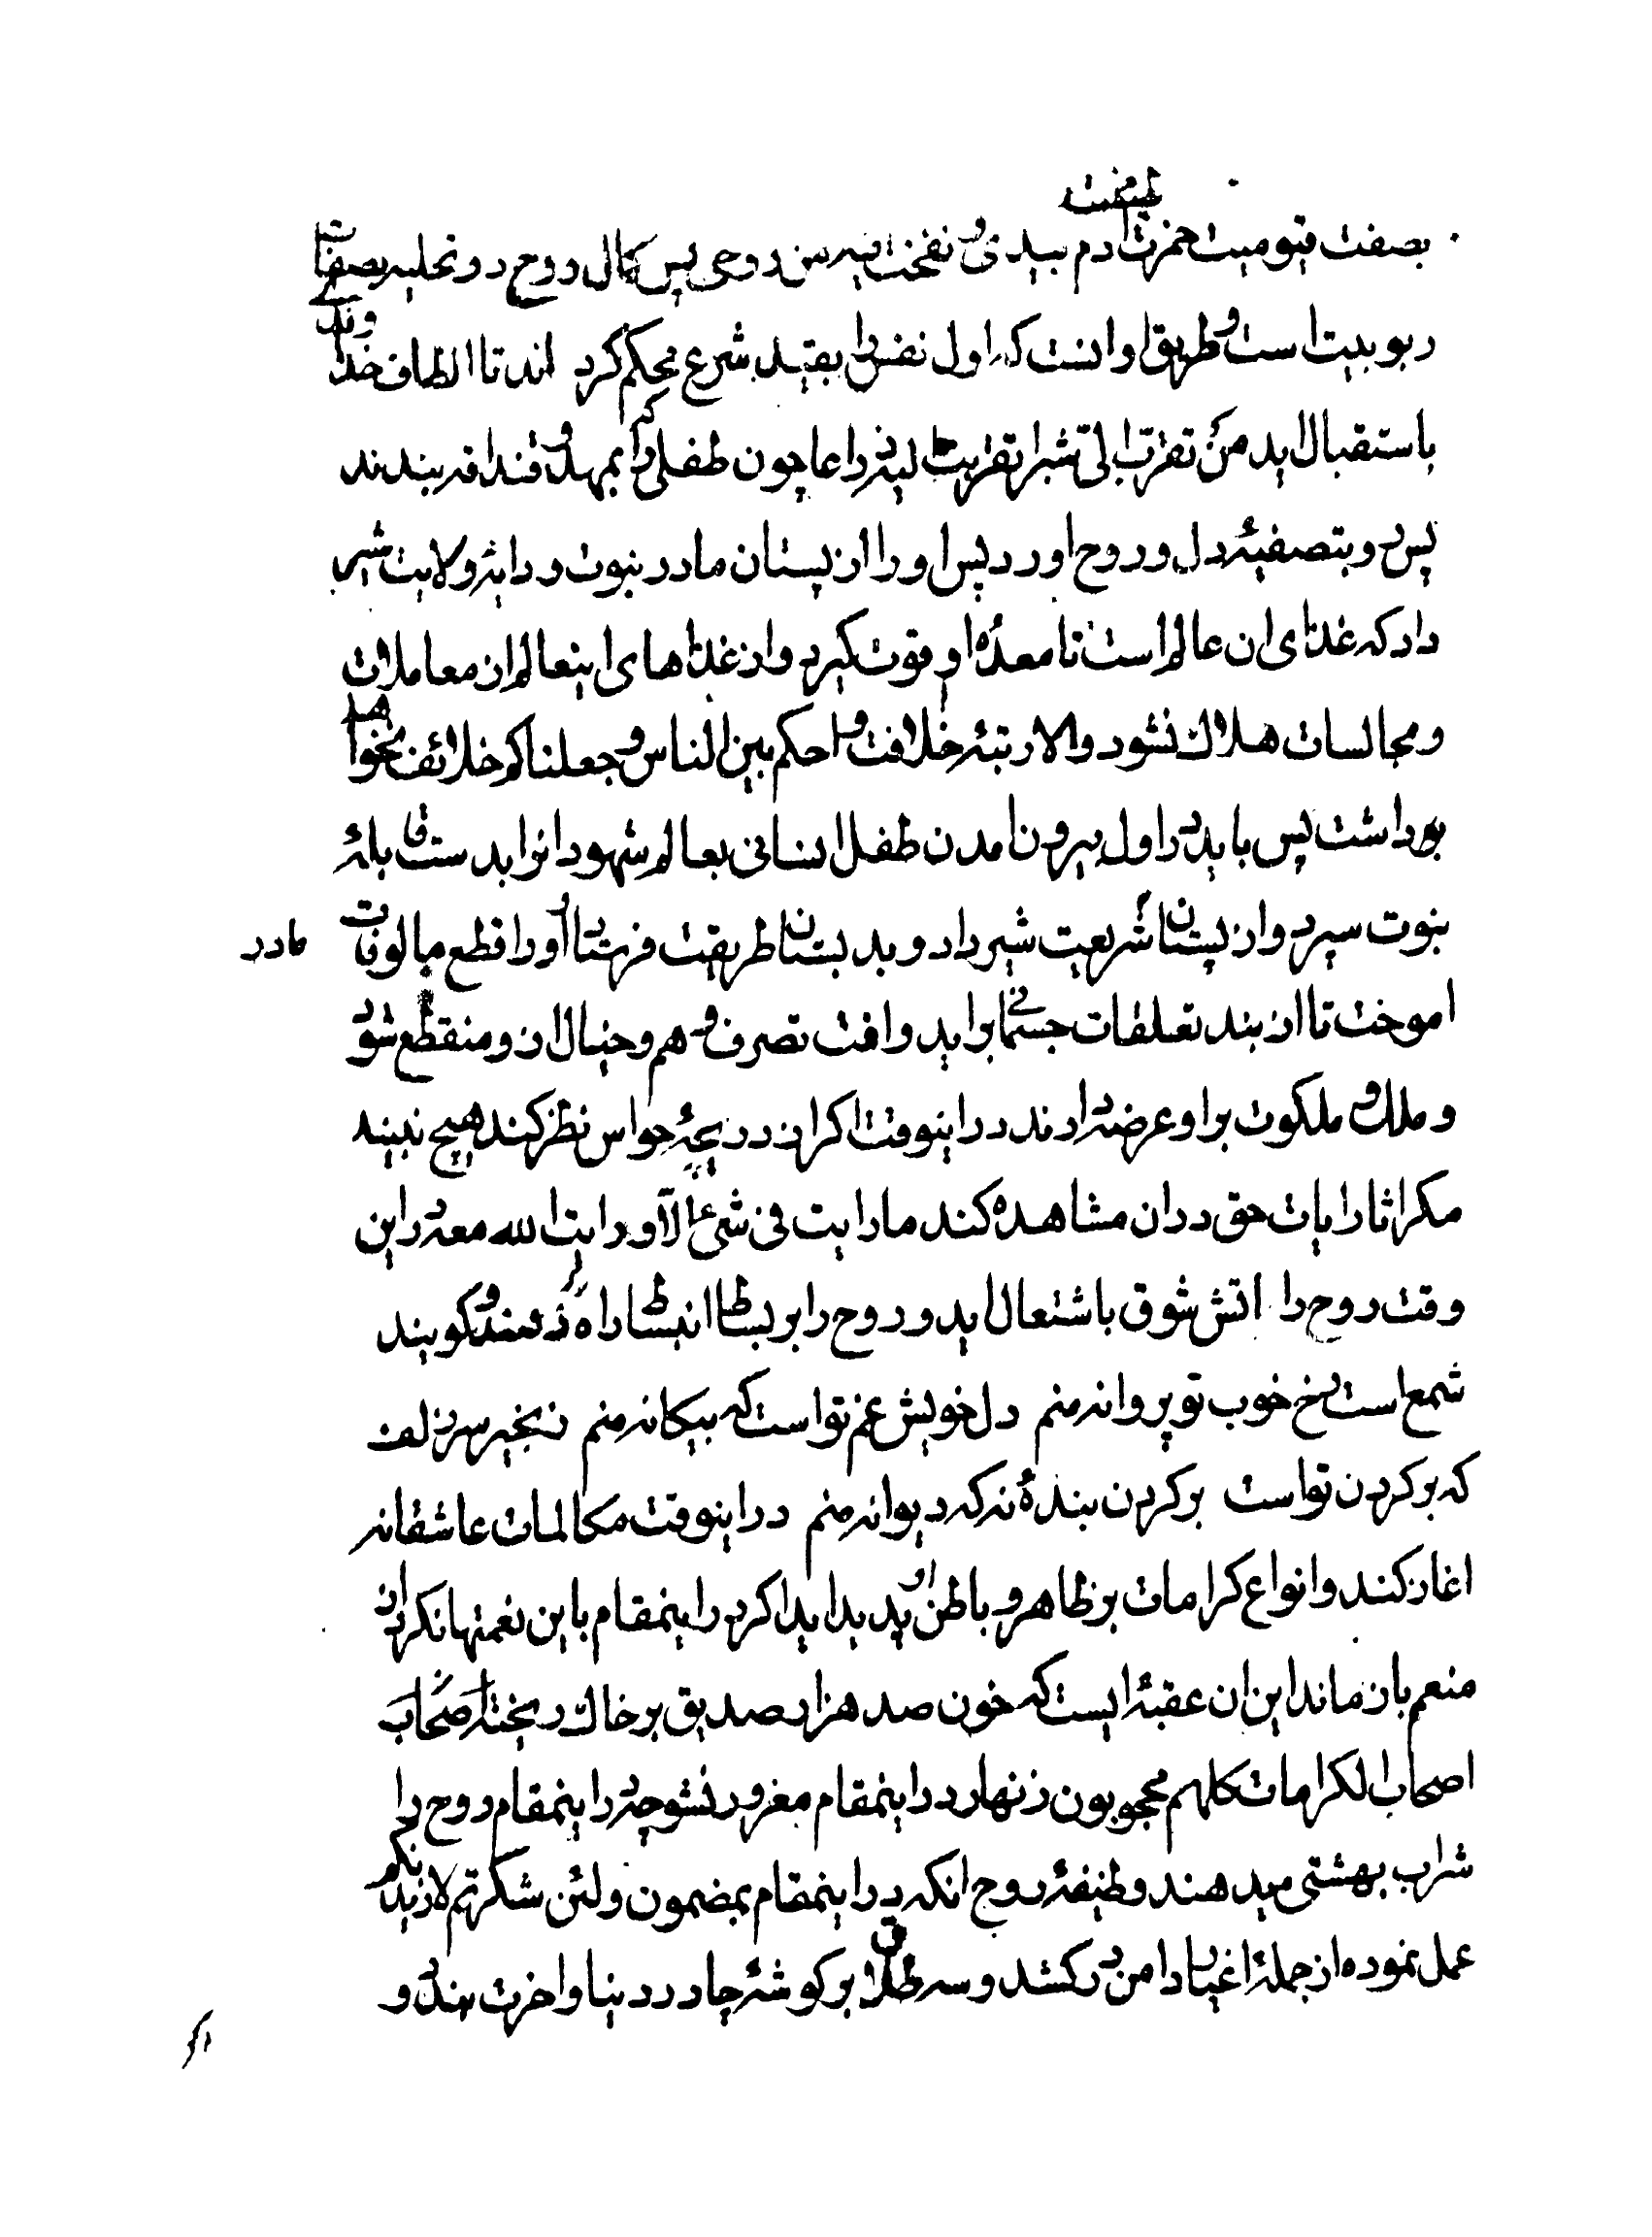 بصفت قیومیت خمرت ادم بیدی و نفخت فیه من روحی پس کمال روح در تحلیه بصفات
ربوبیت است و طریق او انست که اول نفس را بقید شرع محکم کرد اند تا الطاف خداوند
باستقبال اید من تقرب الی شبرا تقربت الیه ذراعا چون طفلی را که بمهد و قنداقه ببندند
پس و بتصفیهٔ دل و روح اورد پس او را از پستان مادر نبوت و دایه ولایت شیر
داد که غذای ان عالم است تا معدهٔ او قوت کیرد و از غذاهای اینعالم از معاملات
و مجالسات هلاک نشود والا رتبه خلافت و احکم بین الناس و جعلناکم خلائف نخواهد
بود داشت پس باید در اول بیرون امدن طفل انسانی بعالم شهود انرا بدست قابلهٔ
نبوت سپرد و از پستان شریعت شیر داد و بدبستان طریقت فرستد تا او را قطع مالوفات
مادر
اموخت تا از بند تعلقات جسمانی براید و افت تصرف وهم و خیال از و منقطع شود
و ملک و ملکوت بر او عرضه دارند در اینوقت اکر از دریچهٔ حواس نظر کند هیچ نبیند
مکر اثار ایات حق در ان مشاهده کند ما رایت فی شیء الا و رایت الله معه در این
وقت روح را اتش شوق باشتعال اید و روح را بر بساط انبساط راه دهند و کویند
شمع است رخ خوب تو پروانه منم دل خویش غم تو است که بیکانه منم زنجیر سر زلف
که بر کردن تو است بر کردن بندهٔ نه که دیوانه منم در اینوقت مکالمات عاشقانه
اغاز کند و انواع کرامات بر ظاهر و باطن او پدید اید اکر در اینمقام باین نعمتها نکرد از
منعم باز ماند این ان عقبهٔ ایست که خون صد هزار صدیق بر خاک ریخته اصحاب
اصحاب الکرامات کلهم محجوبون زنهار در اینمقام مغرور نشو چه در اینمقام روح را
شراب بهشتی میدهند وظیفهٔ روح انکه در اینمقام بمضمون ولئن شکرتم لازیدنکم
عمل نموده از جملهٔ اغیار دامن در کشد و سه طلاق بر کوشهٔ چادر دنیا و اخرت بندد و